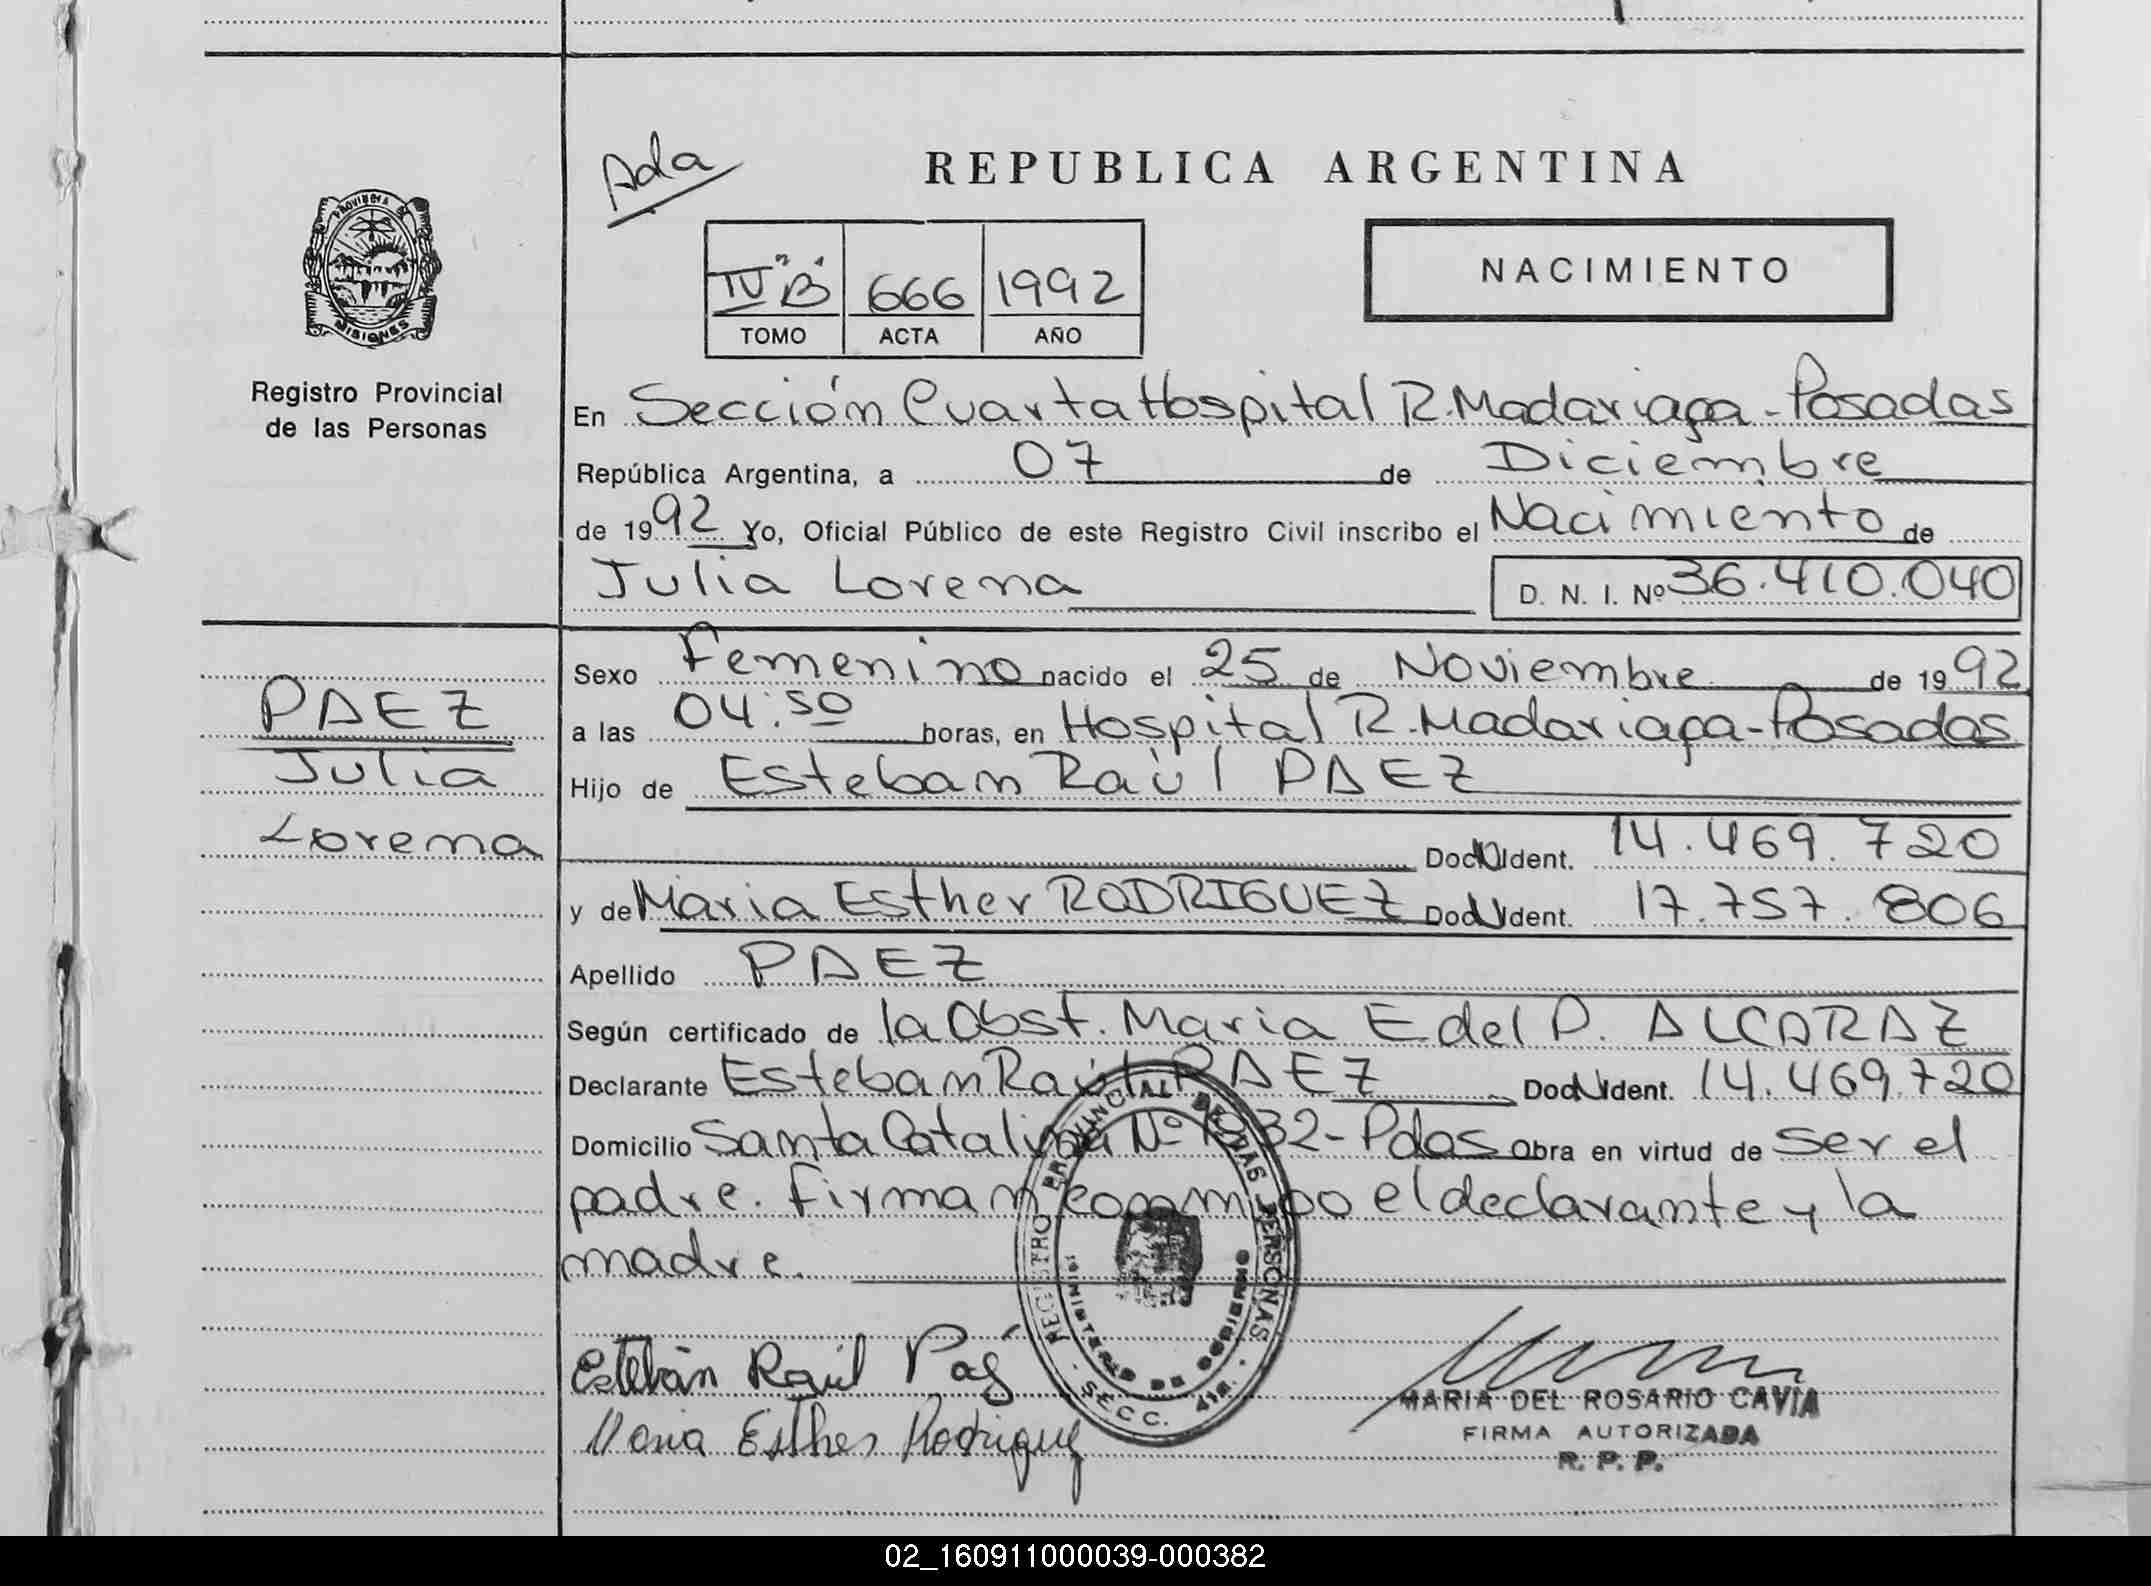 Ada
REPUBLICA ARGENTINA
PROVINCIA DE
MISIONES
IV "B" 666 1992
TOMO ACTA AÑO
NACIMIENTO
Registro Provincial
de las Personas
En Sección Cuarta Hospital R. Madariaga - Posadas
República Argentina, a 07 de Diciembre
de 1992 Yo, Oficial Público de este Registro Civil inscribo el Nacimiento de
Julia Lorena D. N. I. Nº 36.410.040
Sexo Femenino nacido el 25 de Noviembre de 1992
PAEZ
a las 04:50 horas, en Hospital R. Madariaga - Posadas
Julia
Hijo de Esteban Raúl PAEZ
Lorena
Doc. Ident. 14.469.720
y de Maria Esther RODRIGUEZ Doc. Ident. 17.757.806
Apellido PAEZ
Según certificado de la Obst. Maria E del P. ALCARAZ
Declarante Esteban Raúl PAEZ Doc. Ident. 14.469.720
Domicilio Santa Catalina Nº 32 - Pdas Obra en virtud de ser el
padre. Firman conmigo el declarante y la
madre.
REGISTRO PROVINCIAL DE LAS PERSONAS
MINISTERIO DE GOBIERNO
SECC. 4ta.
Esteban Raúl Paez
Maria Esther Rodriguez
MARIA DEL ROSARIO CAVIA
FIRMA AUTORIZADA
R. P. P.
02_160911000039-000382